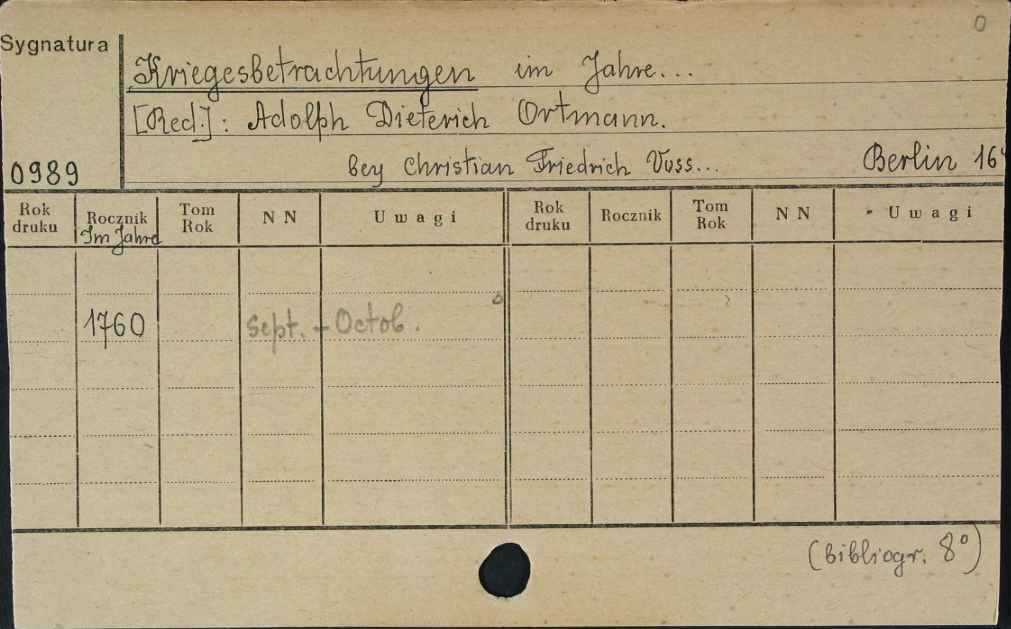 0
Sygnatura
Kriegesbetrachtungen im Jahre...
[Red.]: Adolph Dieterich Ortmann.
0989
bey Christian Friedrich Voss... Berlin 16°
Rok druku Rocznik Im Jahre Tom Rok N N Uwagi Rok druku Rocznik Tom Rok N N Uwagi
1760 Sept. - Octob.
(Bibliogr. 8°)